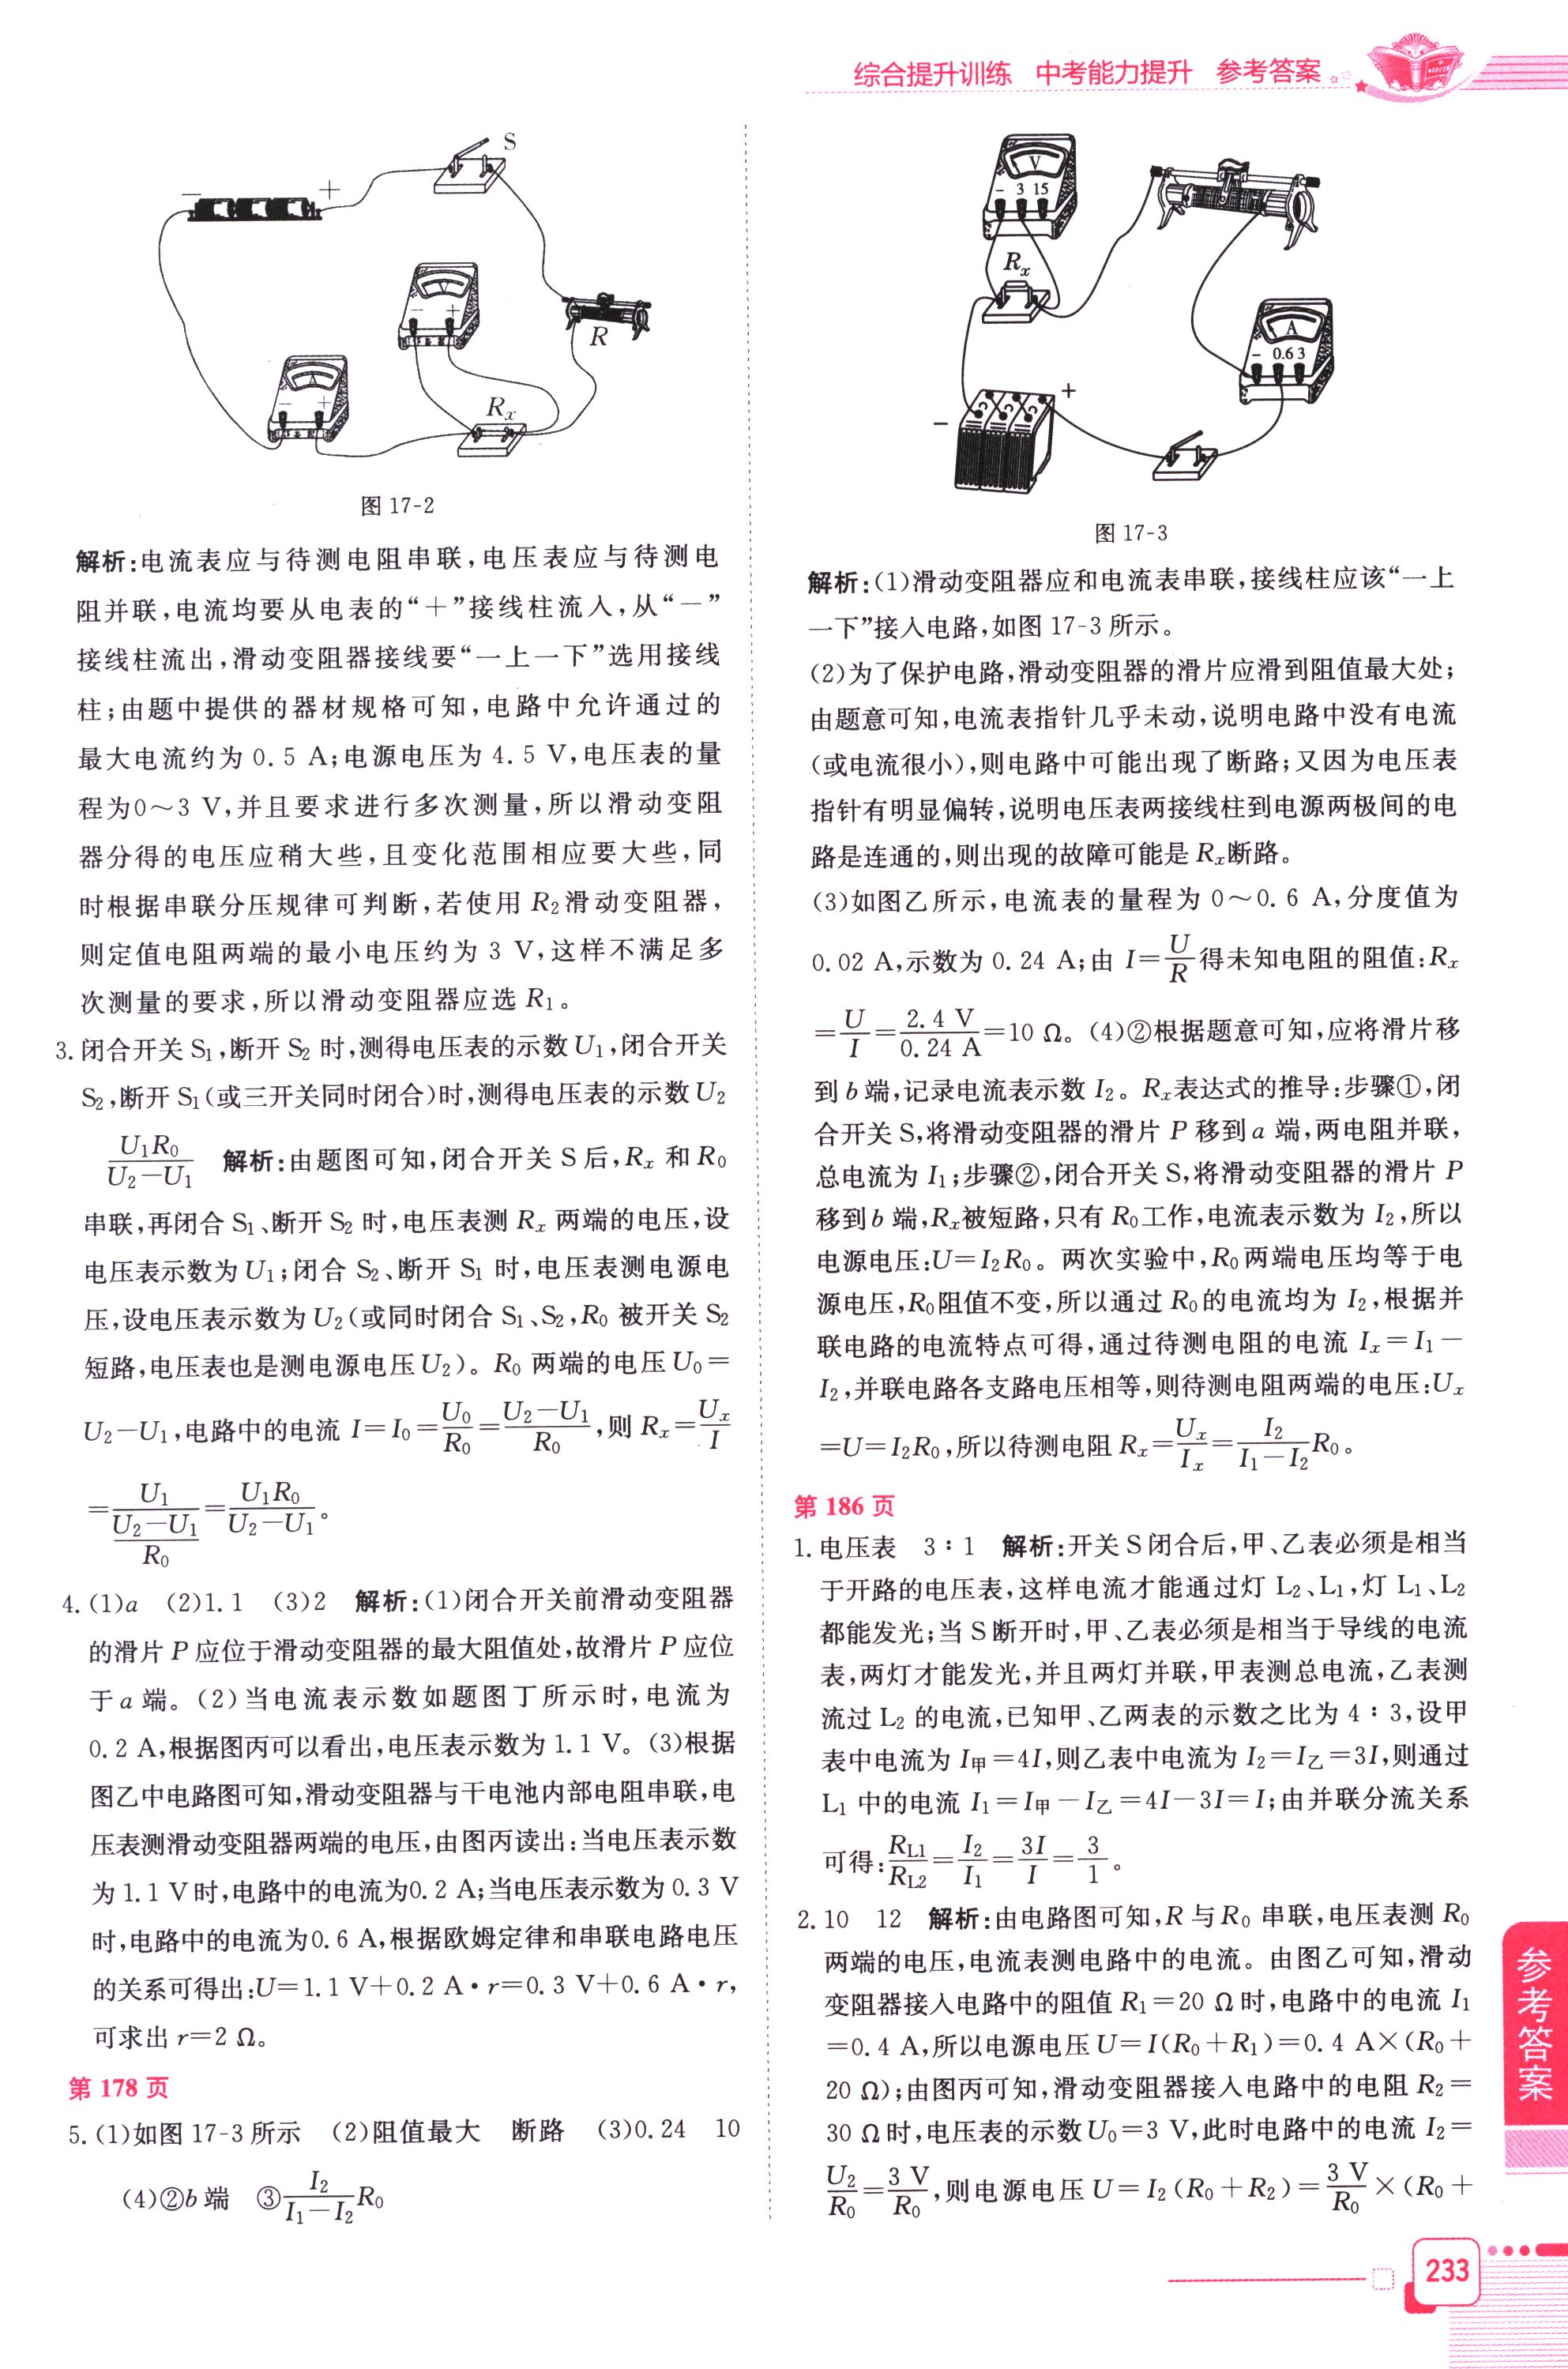 综合提升训练 中考能力提升 参考答案
S
－ ＋
V
－ ＋
R
A
－ ＋
Rx
图 17-2
解析:电流表应与待测电阻串联,电压表应与待测电
阻并联,电流均要从电表的“＋”接线柱流入,从“－”
接线柱流出,滑动变阻器接线要“一上一下”选用接线
柱;由题中提供的器材规格可知,电路中允许通过的
最大电流约为 0.5 A;电源电压为 4.5 V,电压表的量
程为0～3 V,并且要求进行多次测量,所以滑动变阻
器分得的电压应稍大些,且变化范围相应要大些,同
时根据串联分压规律可判断,若使用 R2滑动变阻器,
则定值电阻两端的最小电压约为 3 V,这样不满足多
次测量的要求,所以滑动变阻器应选 R1。
3. 闭合开关 S1,断开 S2 时,测得电压表的示数 U1,闭合开关
S2,断开 S1(或三开关同时闭合)时,测得电压表的示数 U2
U1R0/(U2－U1) 解析:由题图可知,闭合开关 S 后,Rx 和 R0
串联,再闭合 S1、断开 S2 时,电压表测 Rx 两端的电压,设
电压表示数为 U1;闭合 S2、断开 S1 时,电压表测电源电
压,设电压表示数为 U2(或同时闭合 S1、S2,R0 被开关 S2
短路,电压表也是测电源电压 U2)。R0 两端的电压 U0＝
U2－U1,电路中的电流 I＝I0＝U0/R0＝(U2－U1)/R0,则 Rx＝Ux/I
＝U1/((U2－U1)/R0)＝U1R0/(U2－U1)。
4. (1)a (2)1.1 (3)2 解析:(1)闭合开关前滑动变阻器
的滑片 P 应位于滑动变阻器的最大阻值处,故滑片 P 应位
于 a 端。(2)当电流表示数如题图丁所示时,电流为
0.2 A,根据图丙可以看出,电压表示数为 1.1 V。(3)根据
图乙中电路图可知,滑动变阻器与干电池内部电阻串联,电
压表测滑动变阻器两端的电压,由图丙读出:当电压表示数
为 1.1 V时,电路中的电流为0.2 A;当电压表示数为 0.3 V
时,电路中的电流为0.6 A,根据欧姆定律和串联电路电压
的关系可得出:U＝1.1 V＋0.2 A•r＝0.3 V＋0.6 A•r,
可求出 r＝2 Ω。
第 178 页
5. (1)如图 17-3 所示 (2)阻值最大 断路 (3)0.24 10
(4)②b 端 ③I2/(I1－I2)R0
V
－ 3 15
Rx
A
－ 0.6 3
＋
－
图 17-3
解析:(1)滑动变阻器应和电流表串联,接线柱应该“一上
一下”接入电路,如图 17-3 所示。
(2)为了保护电路,滑动变阻器的滑片应滑到阻值最大处;
由题意可知,电流表指针几乎未动,说明电路中没有电流
(或电流很小),则电路中可能出现了断路;又因为电压表
指针有明显偏转,说明电压表两接线柱到电源两极间的电
路是连通的,则出现的故障可能是 Rx断路。
(3)如图乙所示,电流表的量程为 0～0.6 A,分度值为
0.02 A,示数为 0.24 A;由 I＝U/R得未知电阻的阻值:Rx
＝U/I＝2.4 V/0.24 A＝10 Ω。(4)②根据题意可知,应将滑片移
到 b 端,记录电流表示数 I2。Rx表达式的推导:步骤①,闭
合开关 S,将滑动变阻器的滑片 P 移到 a 端,两电阻并联,
总电流为 I1;步骤②,闭合开关 S,将滑动变阻器的滑片 P
移到 b 端,Rx被短路,只有 R0工作,电流表示数为 I2,所以
电源电压:U＝I2R0。两次实验中,R0两端电压均等于电
源电压,R0阻值不变,所以通过 R0的电流均为 I2,根据并
联电路的电流特点可得,通过待测电阻的电流 Ix＝I1－
I2,并联电路各支路电压相等,则待测电阻两端的电压:Ux
＝U＝I2R0,所以待测电阻 Rx＝Ux/Ix＝I2/(I1－I2)R0。
第 186 页
1. 电压表 3∶1 解析:开关 S 闭合后,甲、乙表必须是相当
于开路的电压表,这样电流才能通过灯 L2、L1,灯 L1、L2
都能发光;当 S 断开时,甲、乙表必须是相当于导线的电流
表,两灯才能发光,并且两灯并联,甲表测总电流,乙表测
流过 L2 的电流,已知甲、乙两表的示数之比为 4∶3,设甲
表中电流为 I甲＝4I,则乙表中电流为 I2＝I乙＝3I,则通过
L1 中的电流 I1＝I甲－I乙＝4I－3I＝I;由并联分流关系
可得:RL1/RL2＝I2/I1＝3I/I＝3/1。
2. 10 12 解析:由电路图可知,R 与 R0 串联,电压表测 R0
两端的电压,电流表测电路中的电流。由图乙可知,滑动
变阻器接入电路中的阻值 R1＝20 Ω 时,电路中的电流 I1
＝0.4 A,所以电源电压 U＝I(R0＋R1)＝0.4 A×(R0＋
20 Ω);由图丙可知,滑动变阻器接入电路中的电阻 R2＝
30 Ω 时,电压表的示数 U0＝3 V,此时电路中的电流 I2＝
U2/R0＝3 V/R0,则电源电压 U＝I2(R0＋R2)＝3 V/R0×(R0＋
参考答案
233